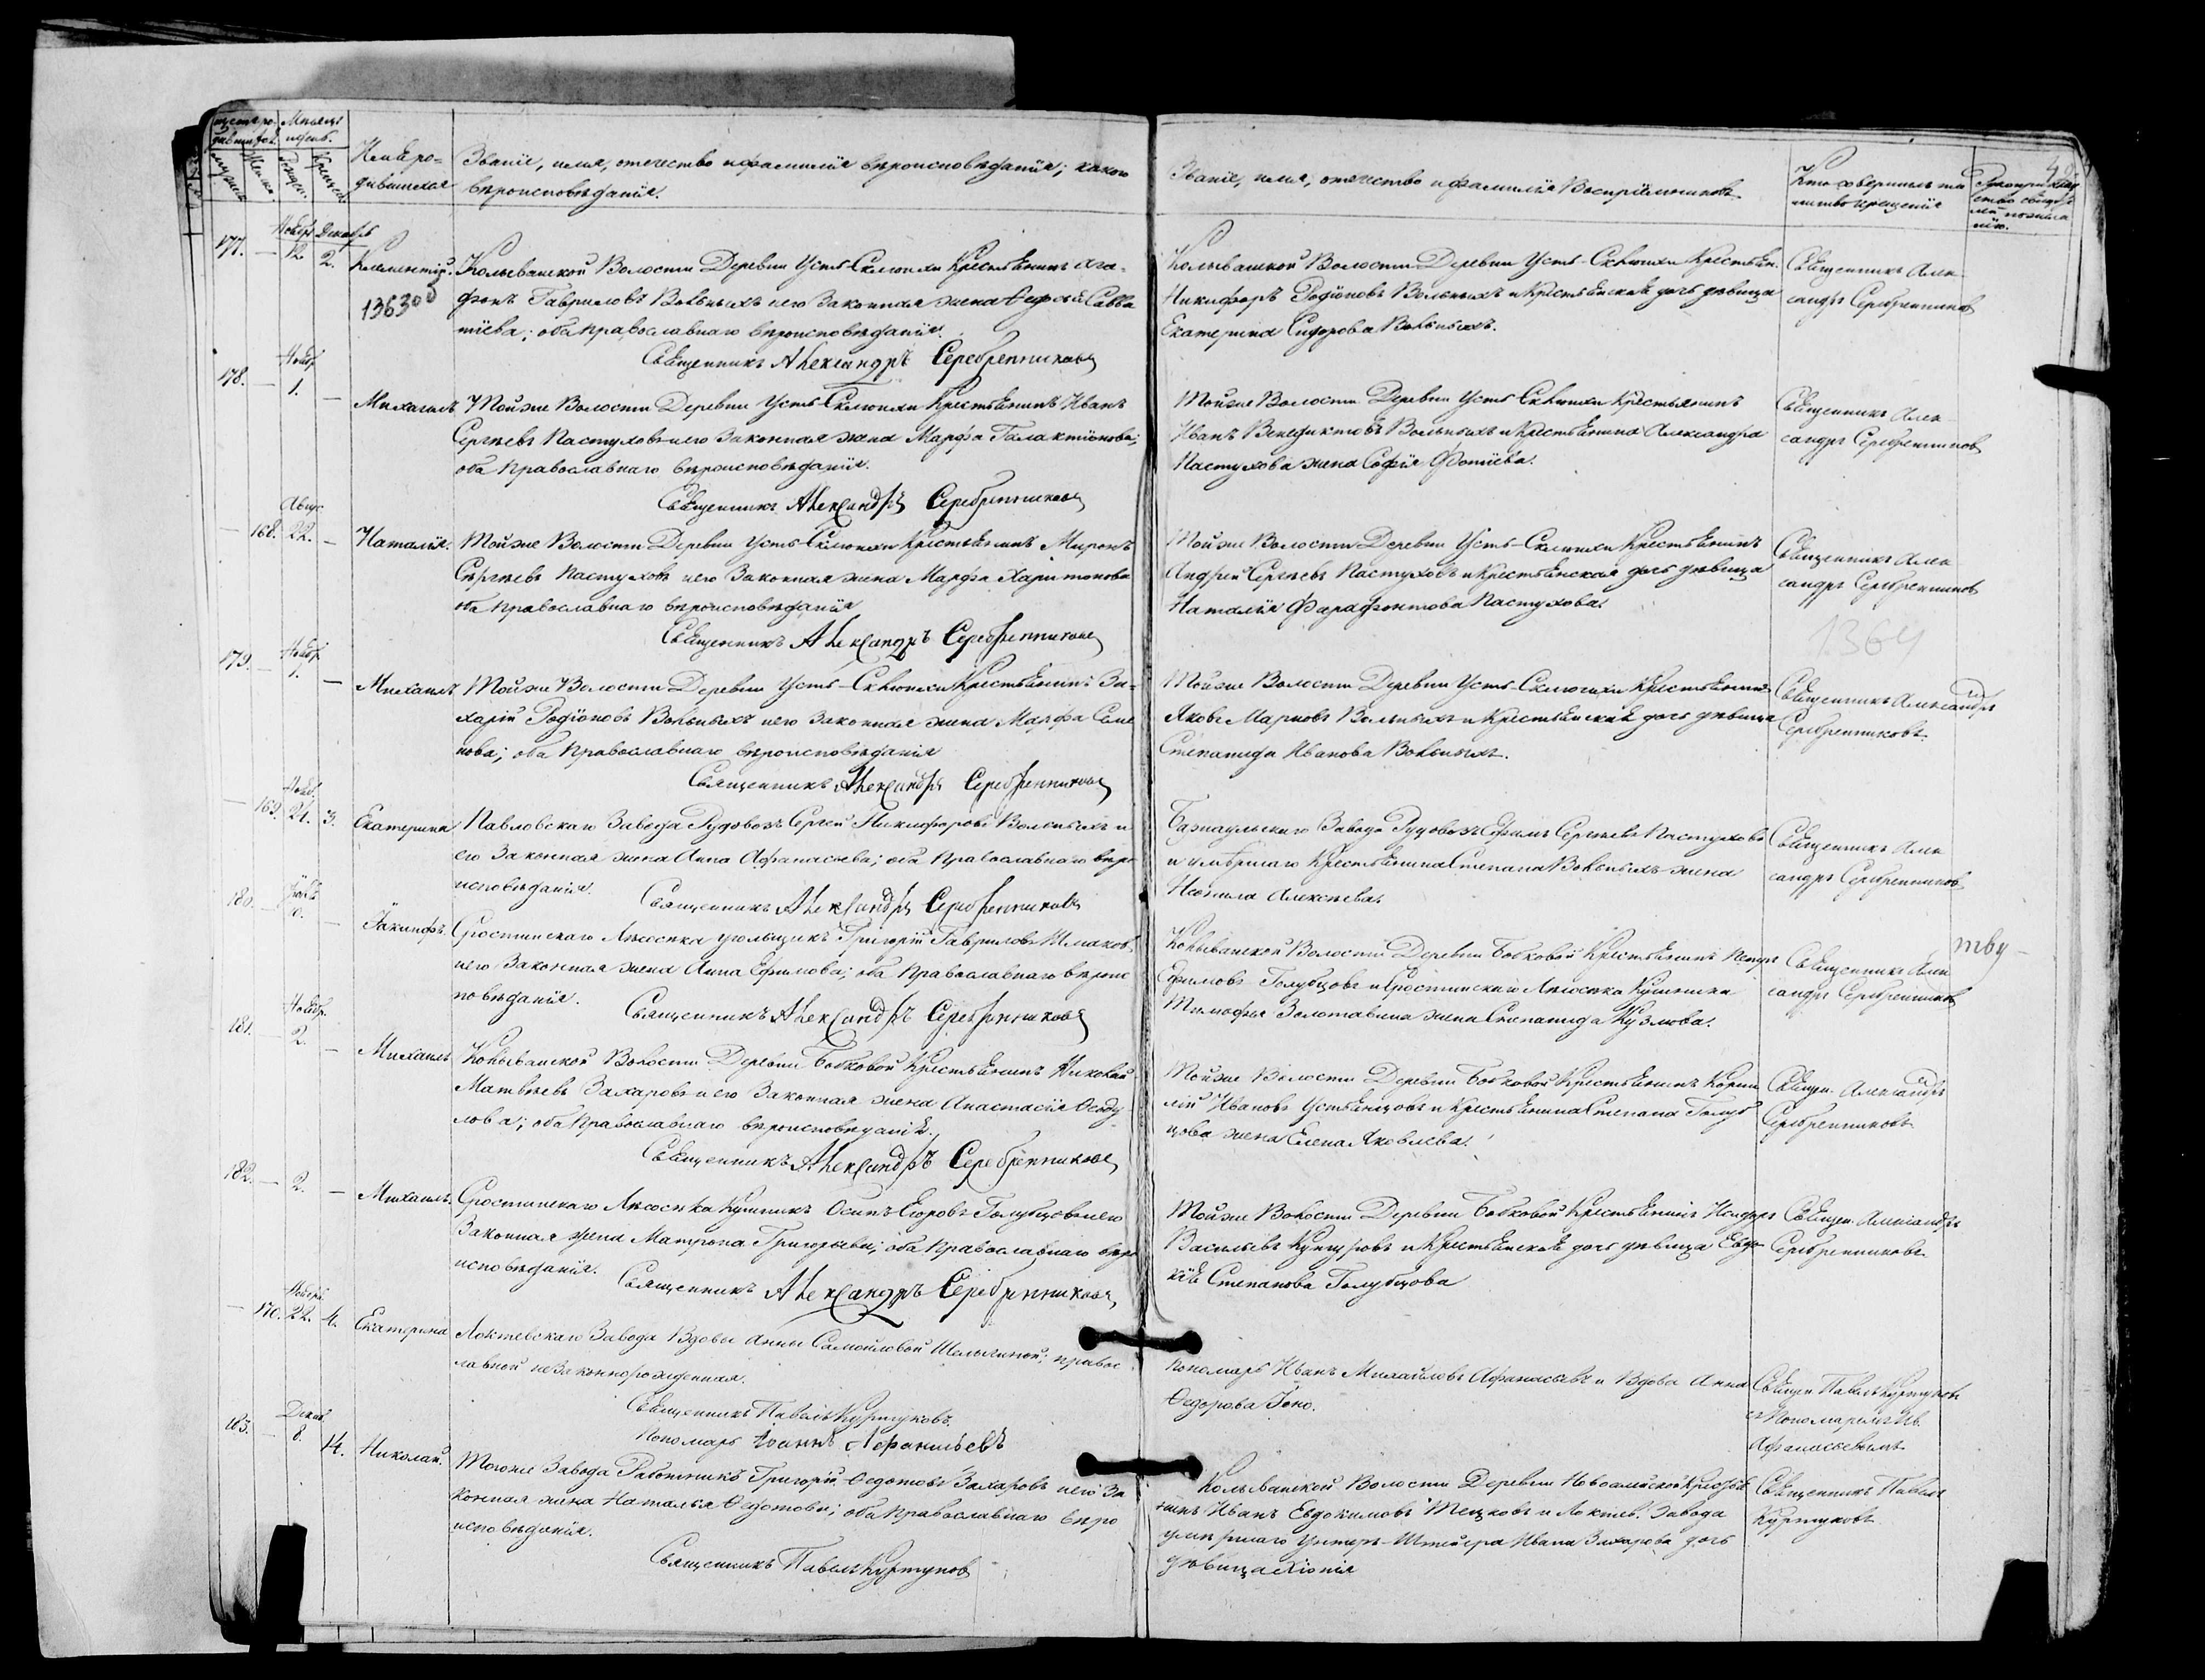 щетъ ро-
дившихся.
Мѣсяцъ
и день.
Мужеска
Женска
Рожден.
Крещен.
Имя ро-
дившихся
Званіе, имя, отечество и фамилія вѣроисповѣданія; какого
вѣроисповѣданія.
Званіе, имя, отечество и фамилія Воспріемниковъ
Кто совершилъ та
инство крещенія
177. — Ноября 12 Декабрь 2. Климентій.
1363 об
Колыванской Волости Деревни Усть-Склюихи Крестьянинъ Ага-
фонъ Гавриловъ Вольныхъ и его Законная жена Савва
тіева; оба православнаго вѣроисповѣданія.
Священникъ Александръ Серебренниковъ
Колыванской Волости Деревни Усть-Склюихи Крестьян.
Никифоръ Родіоновъ Вольныхъ и Крестьянская дочь дѣвица
Екатерина Сидорова Вольныхъ.
Священникъ Алек
сандръ Серебренниковъ
178. — Ноябр. 1. — Михаилъ.
Тойже Волости Деревни Усть-Склюихи Крестьянинъ Иванъ
Сергѣевъ Пастуховъ и его Законная жена Марфа Галактіонова;
оба православнаго вѣроисповѣданія.
Священникъ Александръ Серебренниковъ
Тойже Волости Деревни Усть Склюихи Крестьянинъ
Иванъ Венедиктовъ Вольныхъ и Крестьянина Александра
Пастухова жена Софія Фотіева.
Священникъ Алек
сандръ Серебренниковъ
— 168. Авгус. 22. — Наталія.
Тойже Волости Деревни Усть-Склюихи Крестьянинъ Миронъ
Сергѣевъ Пастуховъ и его Законная жена Марфа Харитонова
оба православнаго вѣроисповѣданія
Священникъ Александръ Серебренниковъ
Тойже Волости Деревни Усть-Склюихи Крестьянинъ
Андрей Сергѣевъ Пастуховъ и Крестьянская дочь дѣвица
Наталія Фарафонтова Пастухова.
Священникъ Алек
сандръ Серебренниковъ
1364
179. — Ноябр. 1. — Михаилъ
Тойже Волости Деревни Усть-Склюихи Крестьянинъ За-
харій Родіоновъ Вольныхъ и его Законная жена Марфа Семе
нова; оба православнаго вѣроисповѣданія
Священникъ Александръ Серебренниковъ
Тойже Волости Деревни Усть-Склюихи Крестьянинъ
Яковъ Марковъ Вольныхъ и Крестьянская дочь дѣвица
Степанида Иванова Вольныхъ.
Священникъ Александръ
Серебренниковъ.
— 169. Нояб. 24. 3. Екатерина
Павловскаго Завода Рудовозъ Сергей Никифоровъ Вольныхъ и
его Законная жена Анна Афанасьева; оба православнаго вѣро
исповѣданія.
Священникъ Александръ Серебренниковъ
Барнаульскаго Завода Рудовозъ Ефимъ Сергѣевъ Пастуховъ
и умершаго Крестьянина Степана Вольныхъ жена
Неонила Алексѣева.
Священникъ Алек
сандръ Серебренниковъ
180. — 10. — Іакинфъ.
Сростинскаго Лѣсосѣка угольщикъ Григорій Гавриловъ Шмаковъ
и его Законная жена Анна Ефимова; оба православнаго вѣроис
повѣданія.
Священникъ Александръ Серебренниковъ
Колыванской Волости Деревни Бобковой Крестьянинъ Петръ
Ефимовъ Голубцовъ и Сростинскаго Лѣсосѣка Куренника
Тимофея Золотавина жена Степанида Кузмова.
Священникъ Алек
сандръ Серебренниковъ
тву —
181. — Ноябр. 2. — Михаилъ
Колыванской Волости Деревни Бобковой Крестьянинъ Николай
Матвѣевъ Захаровъ и его Законная жена Анастасія Ѳеоду
лова; оба православнаго вѣроисповѣданія.
Священникъ Александръ Серебренниковъ
Тойже Волости Деревни Бобковой Крестьянинъ Корни
лій Ивановъ Устьянцовъ и Крестьянина Степана Голуб
цова жена Елена Яковлева.
Священ. Александръ
Серебренниковъ
182. — 2. — Михаилъ.
Сростинскаго Лѣсосѣка Осипъ Егоровъ Голубцовъ и его
Законная жена Матрона Григорьева; оба православнаго вѣро
исповѣданія.
Священникъ Александръ Серебренниковъ
Тойже Волости Деревни Бобковой Крестьянинъ Исидоръ
Васильевъ и Крестьянская дочь дѣвица Евдо
кія Степанова Голубцова
Священ. Александръ
Серебренниковъ
— 170. Ноябрь 22. 4. Екатерина
Локтевскаго Завода Вдовы Анны Самойловой Шелыгиной; правос
лавной незаконнорожденная.
Священникъ Павелъ Куртуковъ.
Пономарь Іоаннъ Афанасьевъ
Пономарь Иванъ Михайловъ Афанасьевъ и Вдова Анна
Ѳедорова
Священ Павелъ Куртуковъ
съ Пономаремъ Ив.
Афанасьевымъ
183. — Декаб. 8. 14. Николай.
Тогоже Завода Работникъ Григорій Ѳедотовъ Захаровъ и его За
конная жена Наталья Ѳедотова; оба православнаго вѣро
исповѣданія.
Священникъ Павелъ Куртуковъ
Колыванской Волости Деревни Новоалейской Крестья
нинъ Иванъ Евдокимовъ и Локтев. Завода
умершаго Унтеръ-Штейгера Ивана Захарова дочь
дѣвица Хіонія
Священникъ Павелъ
Куртуковъ